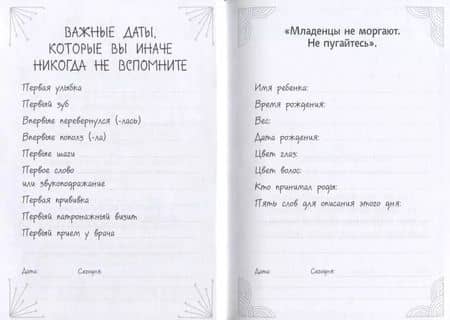 ВАЖНЫЕ ДАТЫ,
КОТОРЫЕ ВЫ ИНАЧЕ
НИКОГДА НЕ ВСПОМНИТЕ
Первая улыбка
Первый зуб
Впервые перевернулся (-лась)
Впервые пополз (-ла)
Первые шаги
Первое слово
или звукоподражание
Первая прививка
Первый патронажный визит
Первый прием у врача
Дата: Сегодня:
«Младенцы не моргают.
Не пугайтесь».
Имя ребенка:
Время рождения:
Вес:
Дата рождения:
Цвет глаз:
Цвет волос:
Кто принимал роды:
Пять слов для описания этого дня:
Дата: Сегодня: